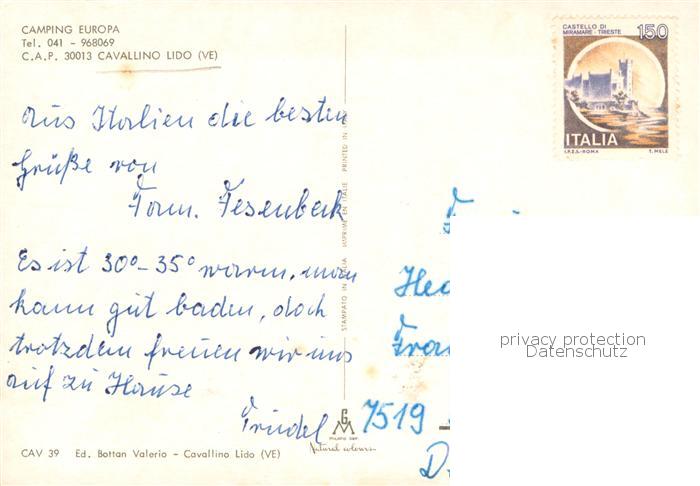 CAMPING EUROPA
Tel. 041 - 968069
C.A.P. 30013 CAVALLINO LIDO (VE)
CASTELLO DI
MIRAMARE - TRIESTE
150
ITALIA
I.P.Z.S. - ROMA
T. MELE
Aus Italien die besten
Grüße von
Fam. Fesenbeck
Es ist 30° - 35° warm, man
kann gut baden, doch
trotzdem freuen wir uns
auf zu Hause
Trudel
STAMPATO IN ITALIA IMPRIMÉ EN ITALIE PRINTED IN
7519
privacy protection
Datenschutz
Natural colours
CAV 39 Ed. Bottan Valerio - Cavallino Lido (VE)